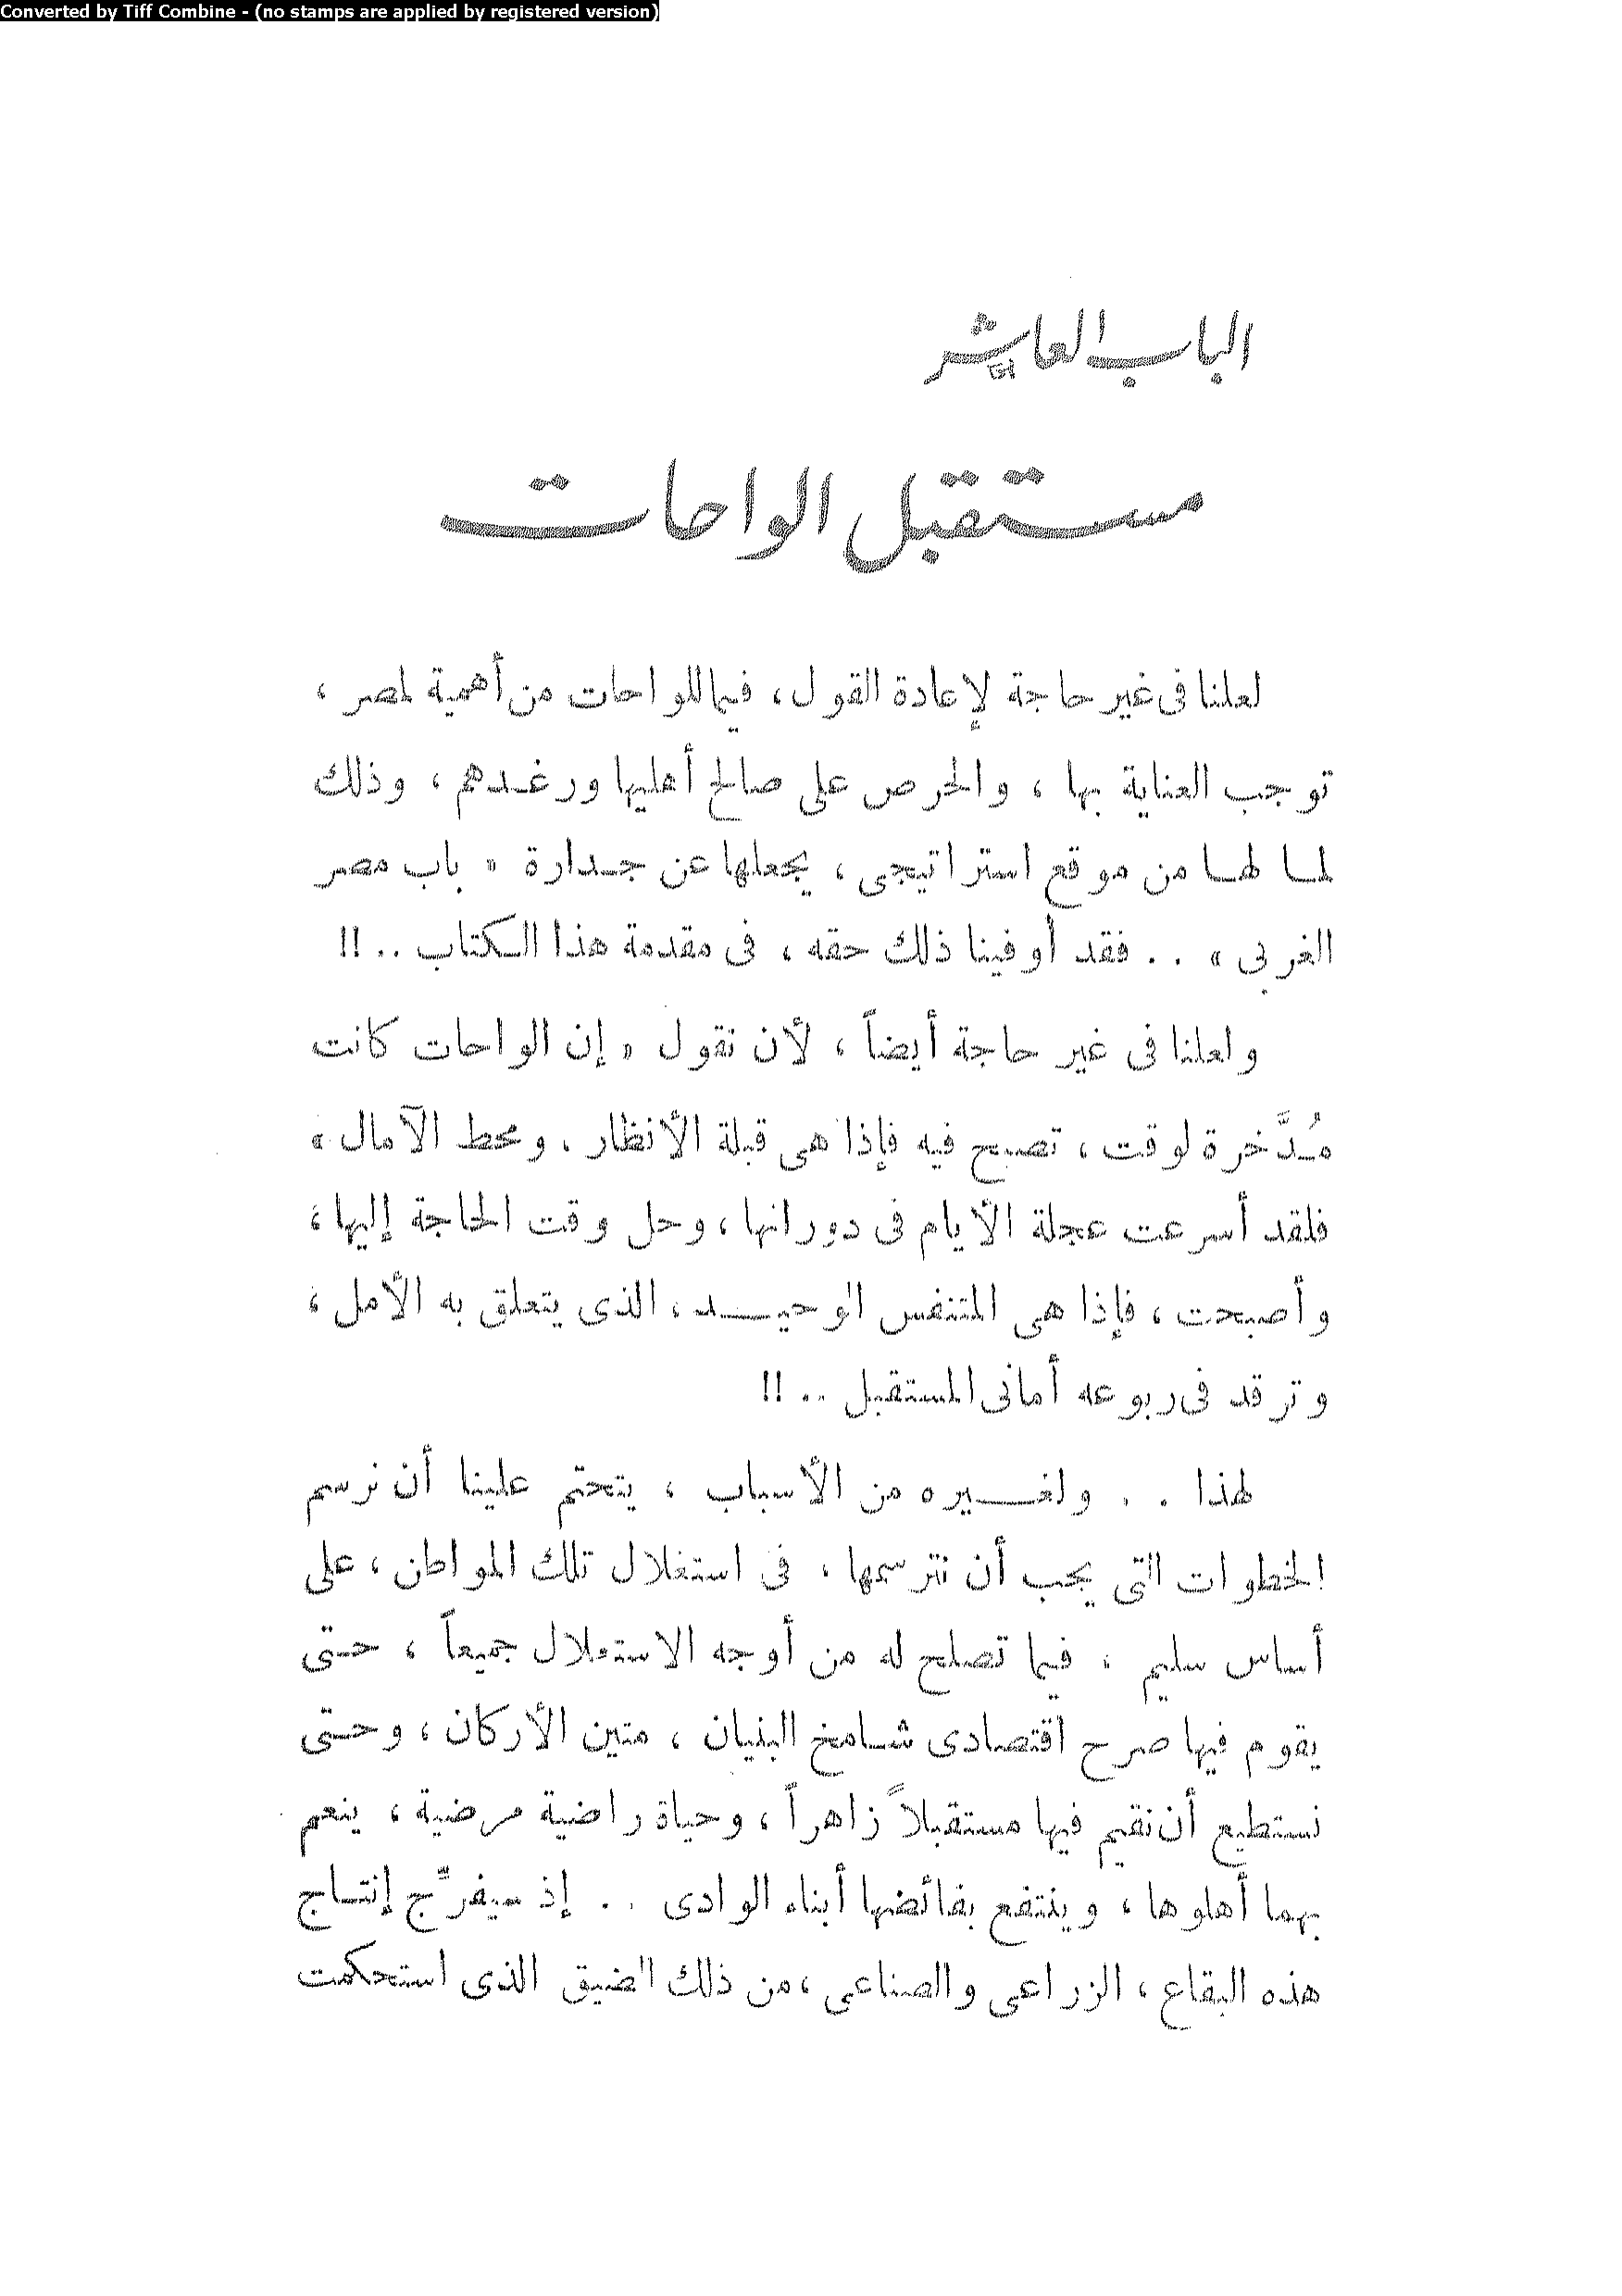 Converted by Tiff Combine - (no stamps are applied by registered version)
الباب العاشر
مستقبل الواحات
لعلنا فى غير حاجة لإعادة القول ، فيما للواحات من أهمية لمصر ،
توجب العناية بها ، والحرص على صالح أهليها ورغـدهم ، وذلك
لمـا لهـا من موقع استراتيجى ، يجعلها عن جـدارة « باب مصر
الغربى » . . فقد أوفينا ذلك حقه ، فى مقدمة هذا الـكتاب .. !!
ولعلنا فى غير حاجة أيضاً ، لأن نقول « إن الواحات كانت
مُـدَّخرة لوقت ، تصبح فيه فإذا هى قبلة الأنظار ، ومحط الآمال »
فلقد أسرعت عجلة الأيام فى دورانها ، وحل وقت الحاجة إليها ؛
وأصبحت ، فإذا هى المتنفس الوحيـــد ، الذى يتعلق به الأمل ؛
وترقد فى ربوعه أمانى المستقبل .. !!
لهذا . . ولغـــيره من الأسباب ، يتحتم علينا أن نرسم
الخطوات التى يجب أن نترسمها ، فى استغلال تلك المواطن ، على
أساس سليم ، فيما تصلح له من أوجه الاستغلال جميعاً ، حـتى
يقوم فيها صرح اقتصادى شـامخ البنيان ، متين الأركان ، وحـتى
نستطيع أن نقيم فيها مستقبلاً زاهراً ، وحياة راضية مرضية ، ينعم
بهما أهلوها ، وينتفع بفائضها أبناء الوادى . . إذ سيفرِّج إنتـاج
هذه البقاع ، الزراعى والصناعى ، من ذلك الضيق الذى استحكمت